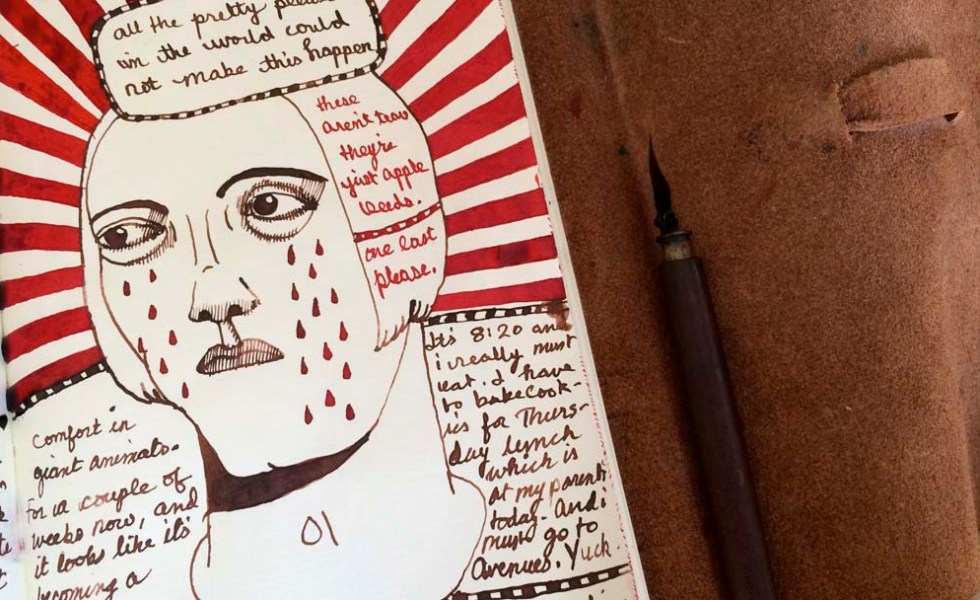 all the pretty please
in the world could
not make this happen
these
aren't tears
they're
just apple
seeds.
one last
please.
It's 8:20 and
i really must
eat. I have
to bake cook-
ies for Thurs-
day lunch
which is
at my parents
today. And i
must go to
Avenues. Yuck.
comfort in
giant animals.
For a couple of
weeks now, and
it looks like it's
becoming a
01